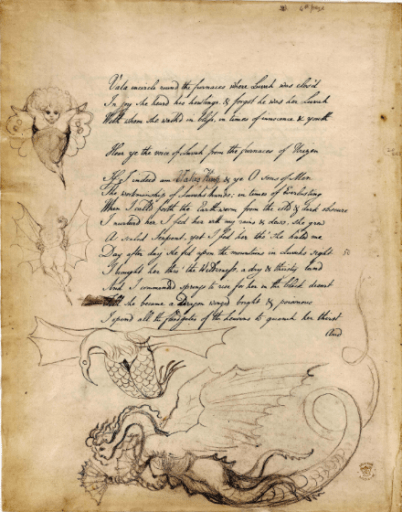 Vala incircle round the furnaces where Luvah was clos'd
In joy she heard his howlings, & forgot he was her Luvah
With whom she walk'd in bliss, in times of innocence & youth
Hear ye the voice of Luvah from the furnaces of Urizen
If I indeed am Valas King & ye O sons of Men
The workmanship of Luvahs hands; in times of Everlasting
When I calld forth the Earth-worm from the cold & dark obscure
I nurturd her I fed her with my rains & dews, she grew
A scaled Serpent, yet I fed her tho' she hated me
Day after day she fed upon the mountains in Luvahs sight
I brought her thro' the Wilderness, a dry & thirsty land
And I commanded springs to rise for her in the black desart
Till she became a Dragon winged bright & poisonous
I opend all the floodgates of the heavens to quench her thirst
And